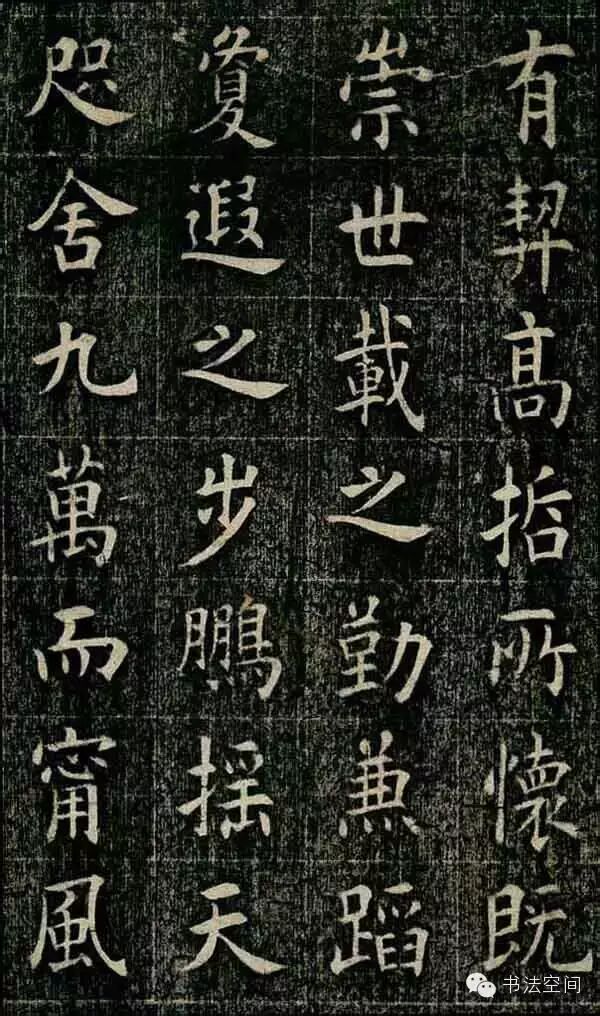 有契高哲所懷既
崇世載之勤兼蹈
敻遐之步鵬摇天
咫舍九萬而甯風
书法空间